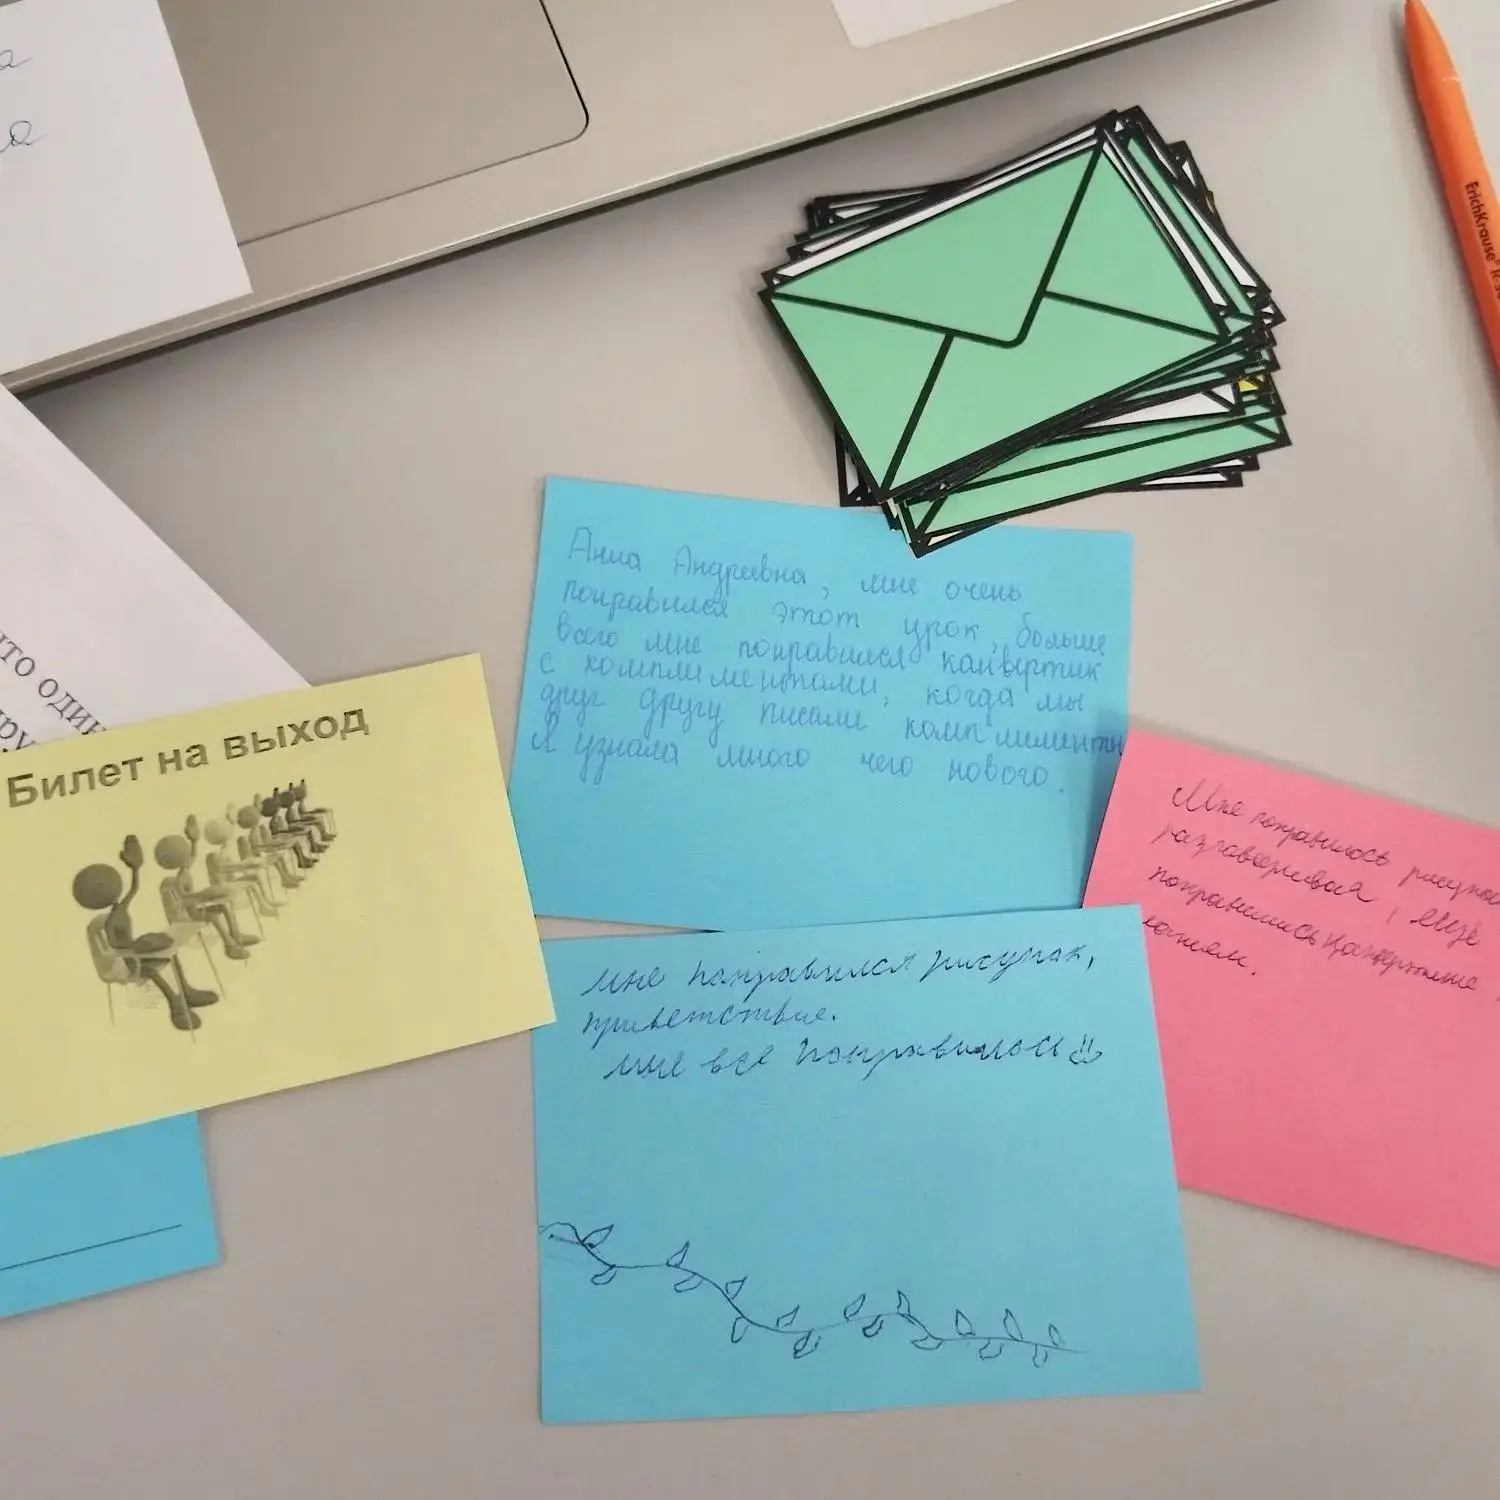 а
ErichKrause® R-30
что один
Билет на выход
Анна Андреевна, мне очень
понравился этот урок, больше
всего мне понравился канвертик
с комплиментами, когда мы
друг другу писали комплименты
Я узнала много чего нового.
Мне понравилось рисунок
разгаваривая, ещё
понравились канвертики
мне панравился рисунак,
приветствие.
мне всё понравилось